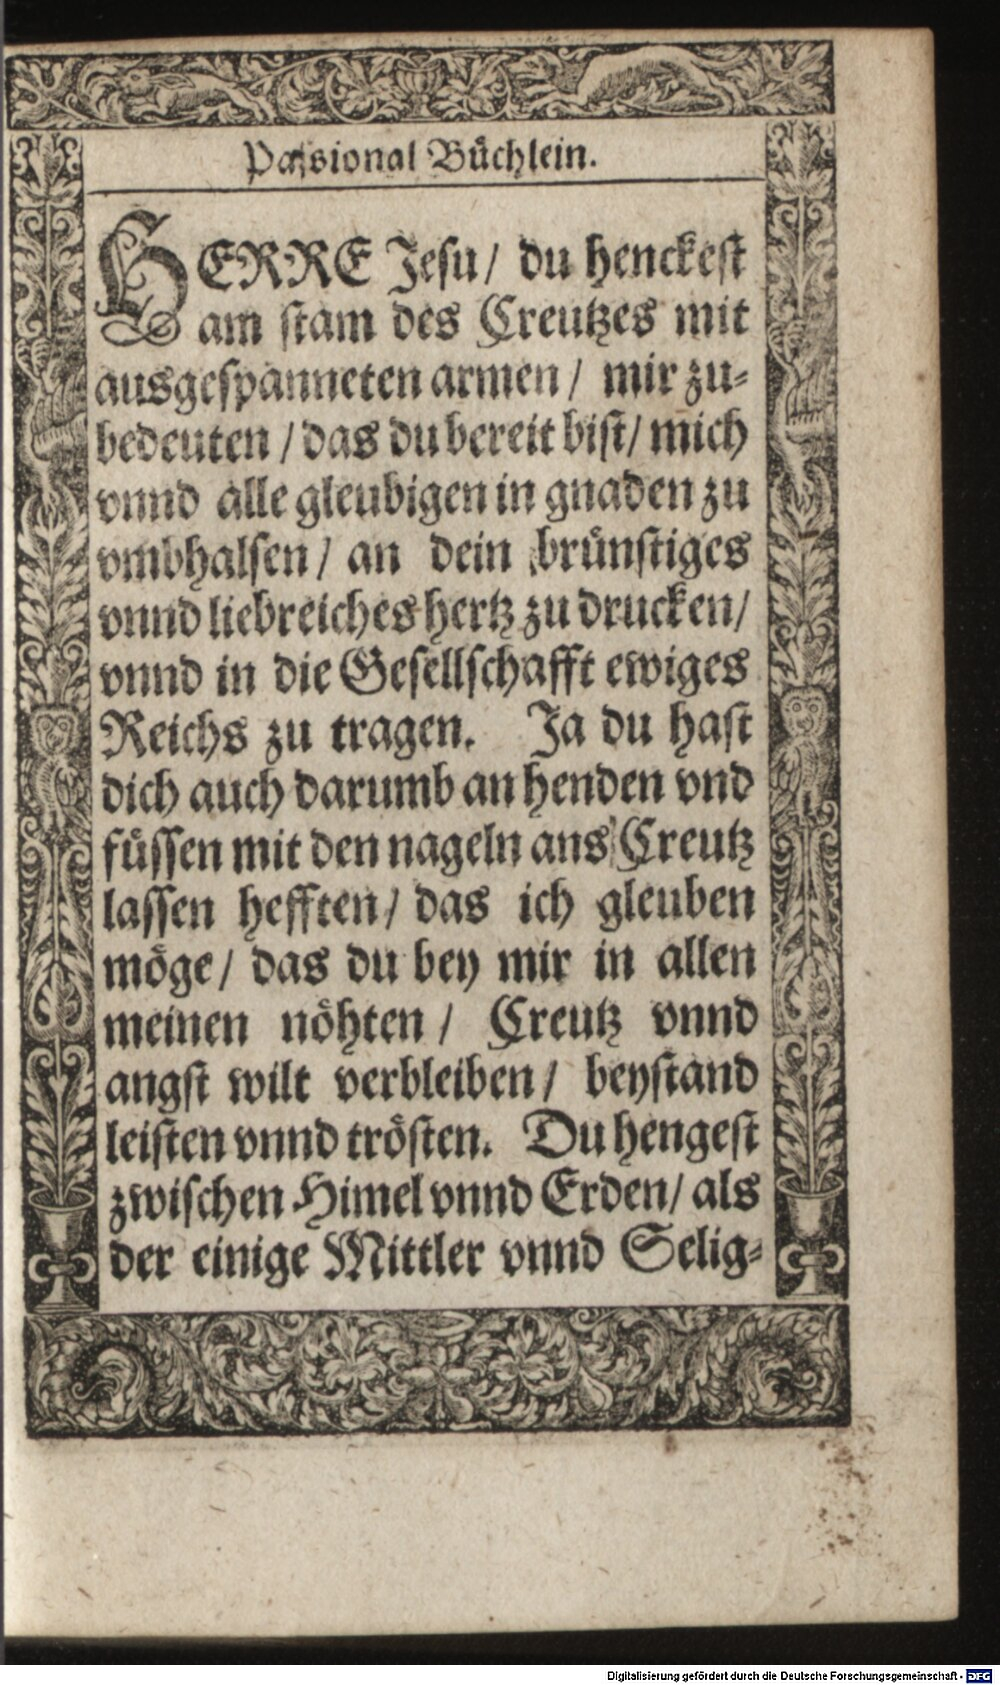 Passional Büchlein.
HERRE Jesu/ du henckest
am stam des Creutzes mit
ausgespanneten armen/ mir zu-
bedeuten/ das du bereit bist/ mich
vnnd alle gleubigen in gnaden zu
vmbhalsen/ an dein brünstiges
vnnd liebreiches hertz zu drucken/
vnnd in die Gesellschafft ewiges
Reichs zu tragen. Ja du hast
dich auch darumb an henden vnd
füssen mit den nageln ans Creutz
lassen hefften/ das ich gleuben
möge/ das du bey mir in allen
meinen nöhten/ Creutz vnnd
angst wilt verbleiben/ beystand
leisten vnnd trösten. Du hengest
zwischen Himel vnnd Erden/ als
der einige Mittler vnnd Selig-
Digitalisierung gefördert durch die Deutsche Forschungsgemeinschaft - DFG